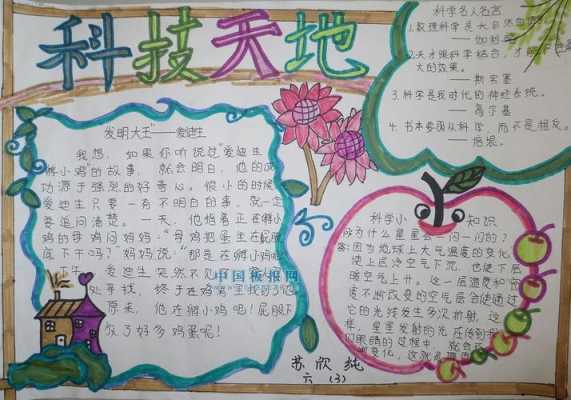 科技天地
发明大王"——爱迪生
我想，如果你听说过"爱迪生
孵小鸡"的故事，就会明白，他的成
功源于强烈的好奇心。很小的时候
爱迪生只要一有不明白的事，就一定
要追问清楚。一天，他指着正在孵小
鸡的母鸡问妈妈："母鸡把蛋坐在屁股
底下干吗？"妈妈说："那是在孵小鸡
爱迪生突然不见
处寻找，终于在鸡窝里找到了他
原来，他在孵小鸡吧！屁股下
放了好多鸡蛋呢！
中国板报网
科学名人名言
1.数理科学是大自
——伽利略
2.天才跟科学结合，才
大的效果。
——斯宾塞
3.科学是我时代的神经系统。
——高尔基
4.书本要跟从科学，而不是相反。
——培根。
科学小知识
问为什么星星会一闪一闪的？
答:因为地球上大气温度的变化
使上层冷空气下沉，也使下层
暖空气上升。这一层温度和密
度不断改变的空气层会使通过
它的光线发生多次折射，这
样，星星发射的光在传到
们眼睛的过程中，就会
变化，这就是
苏欣纯
六（3）